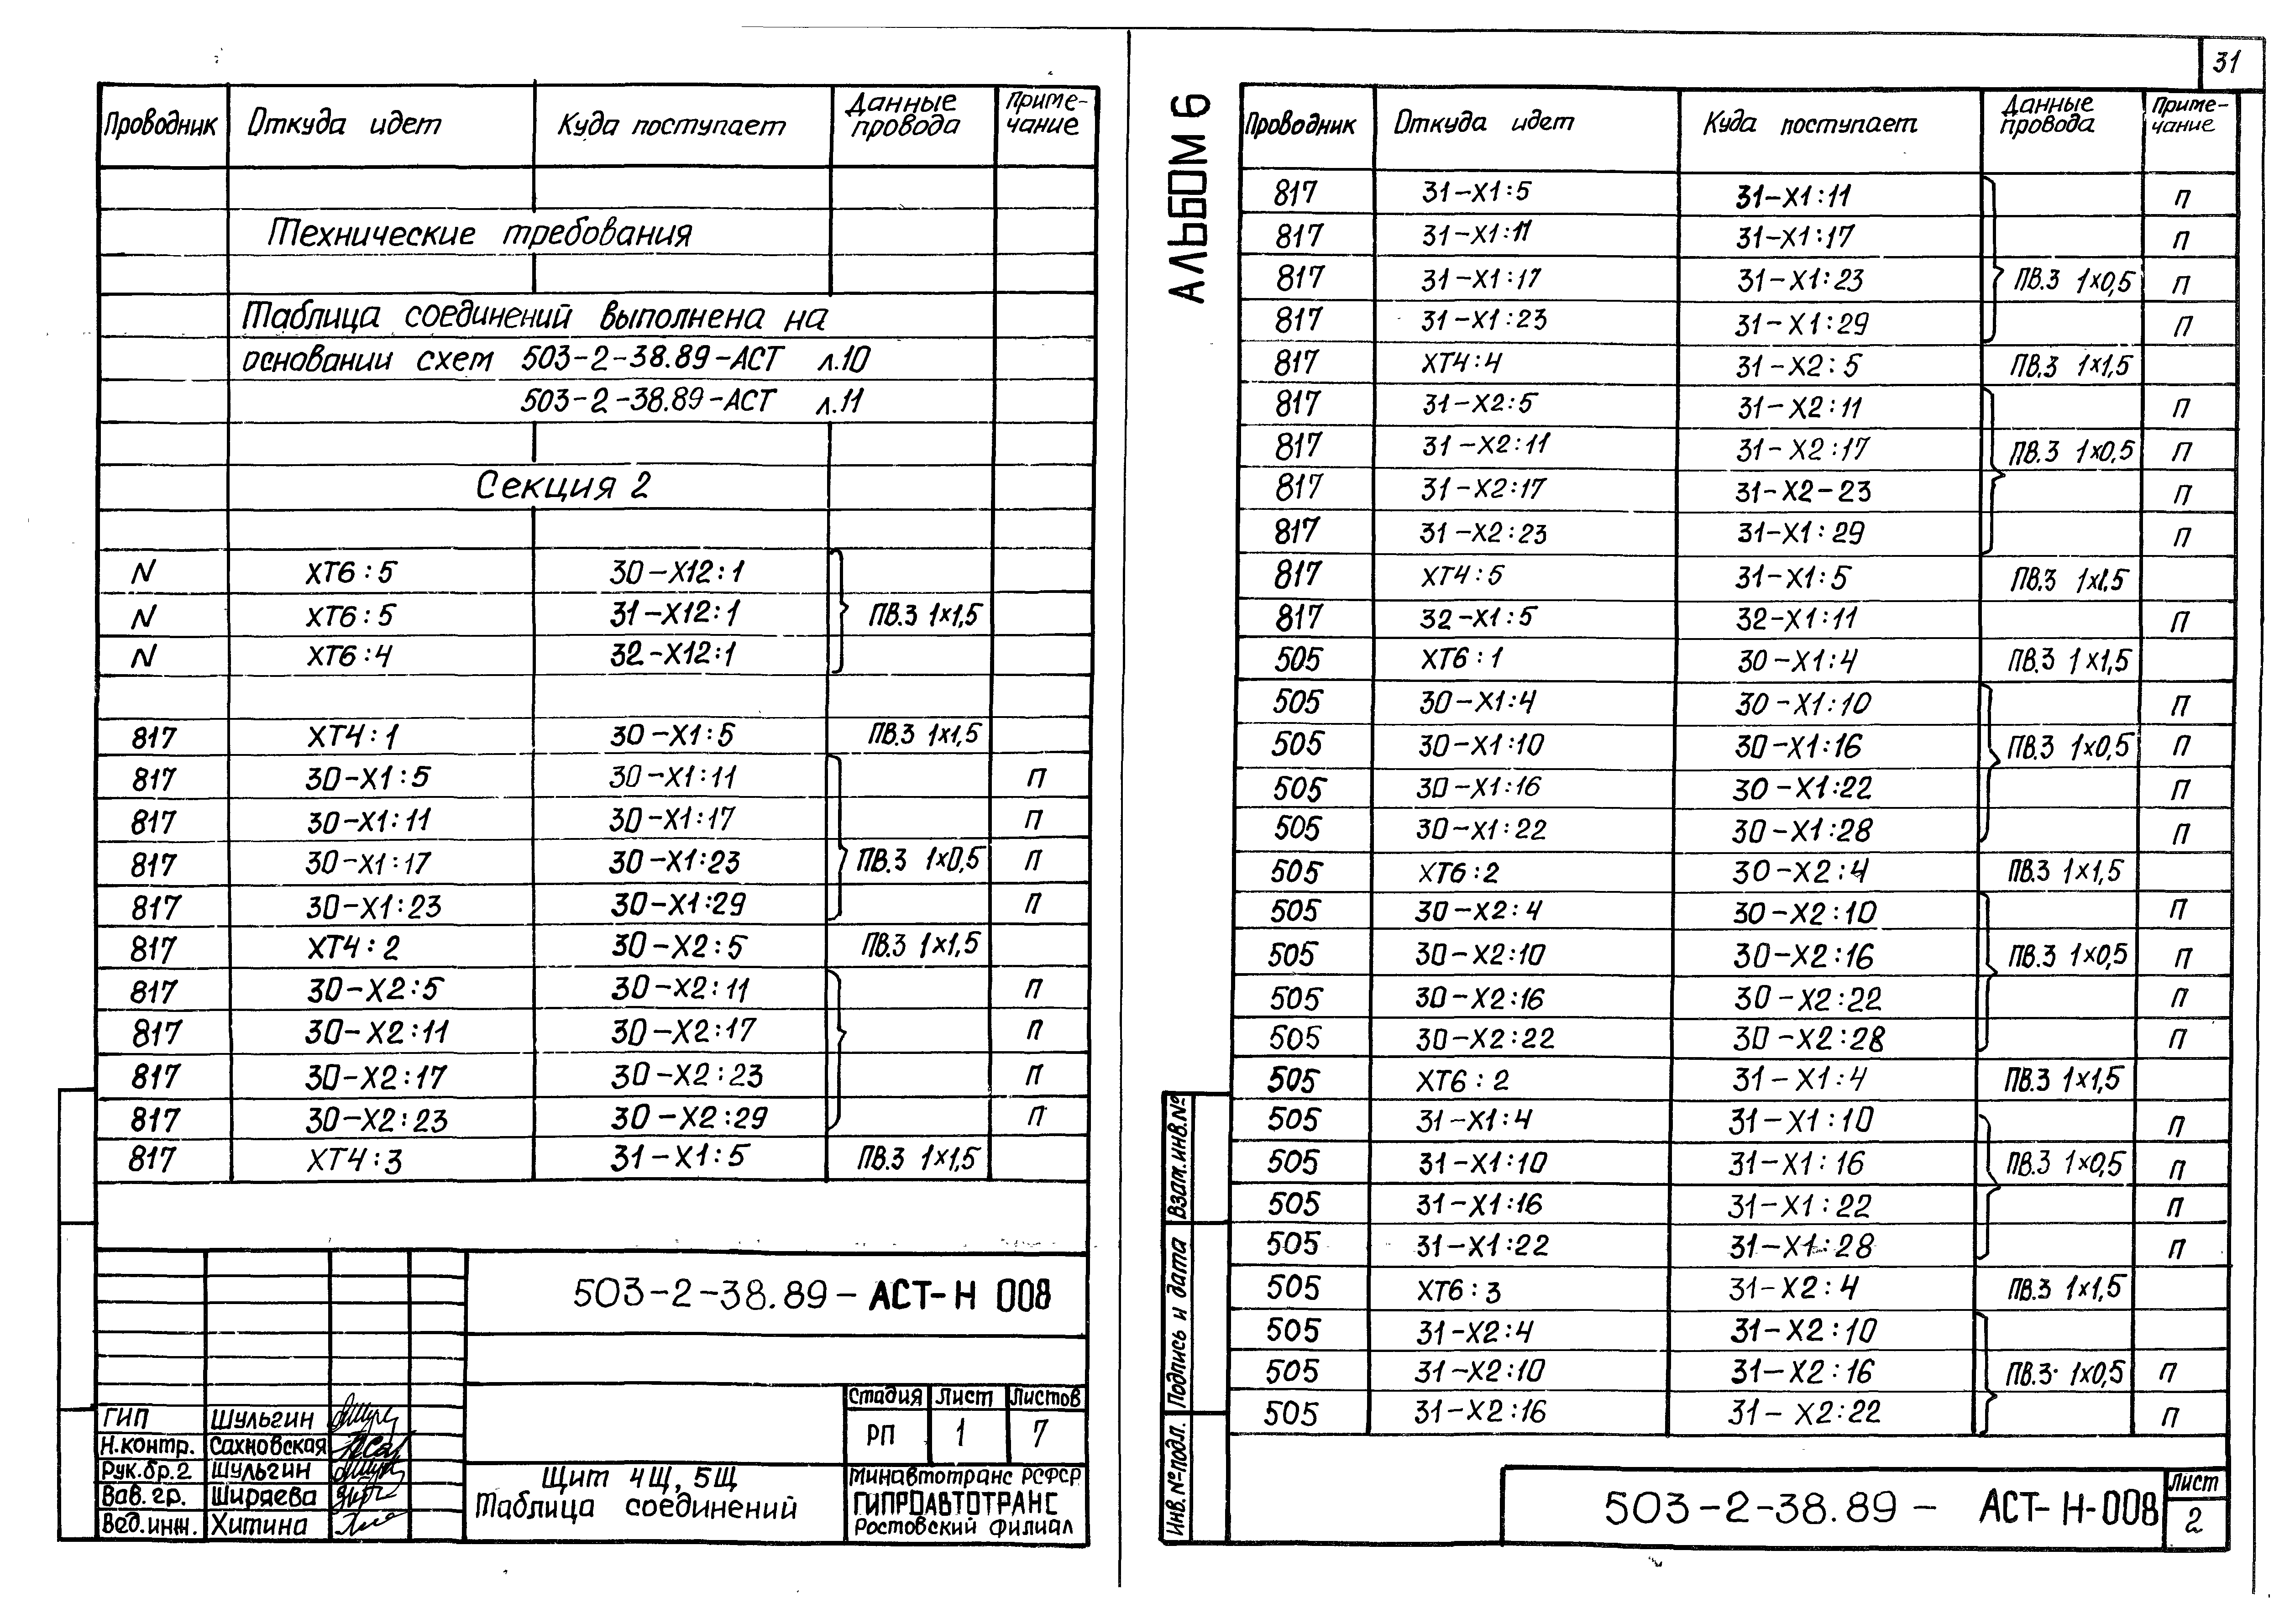 Проводник Откуда идет Куда поступает Данные провода Приме-чание
Технические требования
Таблица соединений выполнена на
основании схем 503-2-38.89-АСТ л.10
503-2-38.89-АСТ л.11
Секция 2
N ХТ6:5 30-Х12:1
N ХТ6:5 31-Х12:1 ПВ.3 1х1,5
N ХТ6:4 32-Х12:1
817 ХТ4:1 30-Х1:5 ПВ.3 1х1,5
817 30-Х1:5 30-Х1:11 П
817 30-Х1:11 30-Х1:17 П
817 30-Х1:17 30-Х1:23 ПВ.3 1х0,5 П
817 30-Х1:23 30-Х1:29 П
817 ХТ4:2 30-Х2:5 ПВ.3 1х1,5
817 30-Х2:5 30-Х2:11 П
817 30-Х2:11 30-Х2:17 П
817 30-Х2:17 30-Х2:23 П
817 30-Х2:23 30-Х2:29 П
817 ХТ4:3 31-Х1:5 ПВ.3 1х1,5
503-2-38.89-АСТ-Н 008
Стадия Лист Листов
РП 1 7
ГИП Шульгин
Н.контр. Сахновская
Рук.бр.2 Шульгин
Зав. гр. Ширяева
Вед.инж. Хитина
Щит 4Щ, 5Щ
Таблица соединений
Минавтотранс РСФСР
ГИПРОАВТОТРАНС
Ростовский филиал
31
АЛЬБОМ 6
Проводник Откуда идет Куда поступает Данные провода Приме-чание
817 31-Х1:5 31-Х1:11 П
817 31-Х1:11 31-Х1:17 П
817 31-Х1:17 31-Х1:23 ПВ.3 1х0,5 П
817 31-Х1:23 31-Х1:29 П
817 ХТ4:4 31-Х2:5 ПВ.3 1х1,5
817 31-Х2:5 31-Х2:11 П
817 31-Х2:11 31-Х2:17 ПВ.3 1х0,5 П
817 31-Х2:17 31-Х2-23 П
817 31-Х2:23 31-Х1:29 П
817 ХТ4:5 31-Х1:5 ПВ.3 1х1,5
817 32-Х1:5 32-Х1:11 П
505 ХТ6:1 30-Х1:4 ПВ.3 1х1,5
505 30-Х1:4 30-Х1:10 П
505 30-Х1:10 30-Х1:16 ПВ.3 1х0,5 П
505 30-Х1:16 30-Х1:22 П
505 30-Х1:22 30-Х1:28 П
505 ХТ6:2 30-Х2:4 ПВ.3 1х1,5
505 30-Х2:4 30-Х2:10 П
505 30-Х2:10 30-Х2:16 ПВ.3 1х0,5 П
505 30-Х2:16 30-Х2:22 П
505 30-Х2:22 30-Х2:28 П
505 ХТ6:2 31-Х1:4 ПВ.3 1х1,5
505 31-Х1:4 31-Х1:10 П
505 31-Х1:10 31-Х1:16 ПВ.3 1х0,5 П
505 31-Х1:16 31-Х1:22 П
505 31-Х1:22 31-Х1:28 П
505 ХТ6:3 31-Х2:4 ПВ.3 1х1,5
505 31-Х2:4 31-Х2:10
505 31-Х2:10 31-Х2:16 ПВ.3 1х0,5 П
505 31-Х2:16 31-Х2:22 П
Взам.инв.№
Подпись и дата
Инв.№подл.
503-2-38.89- АСТ-Н-008
Лист
2